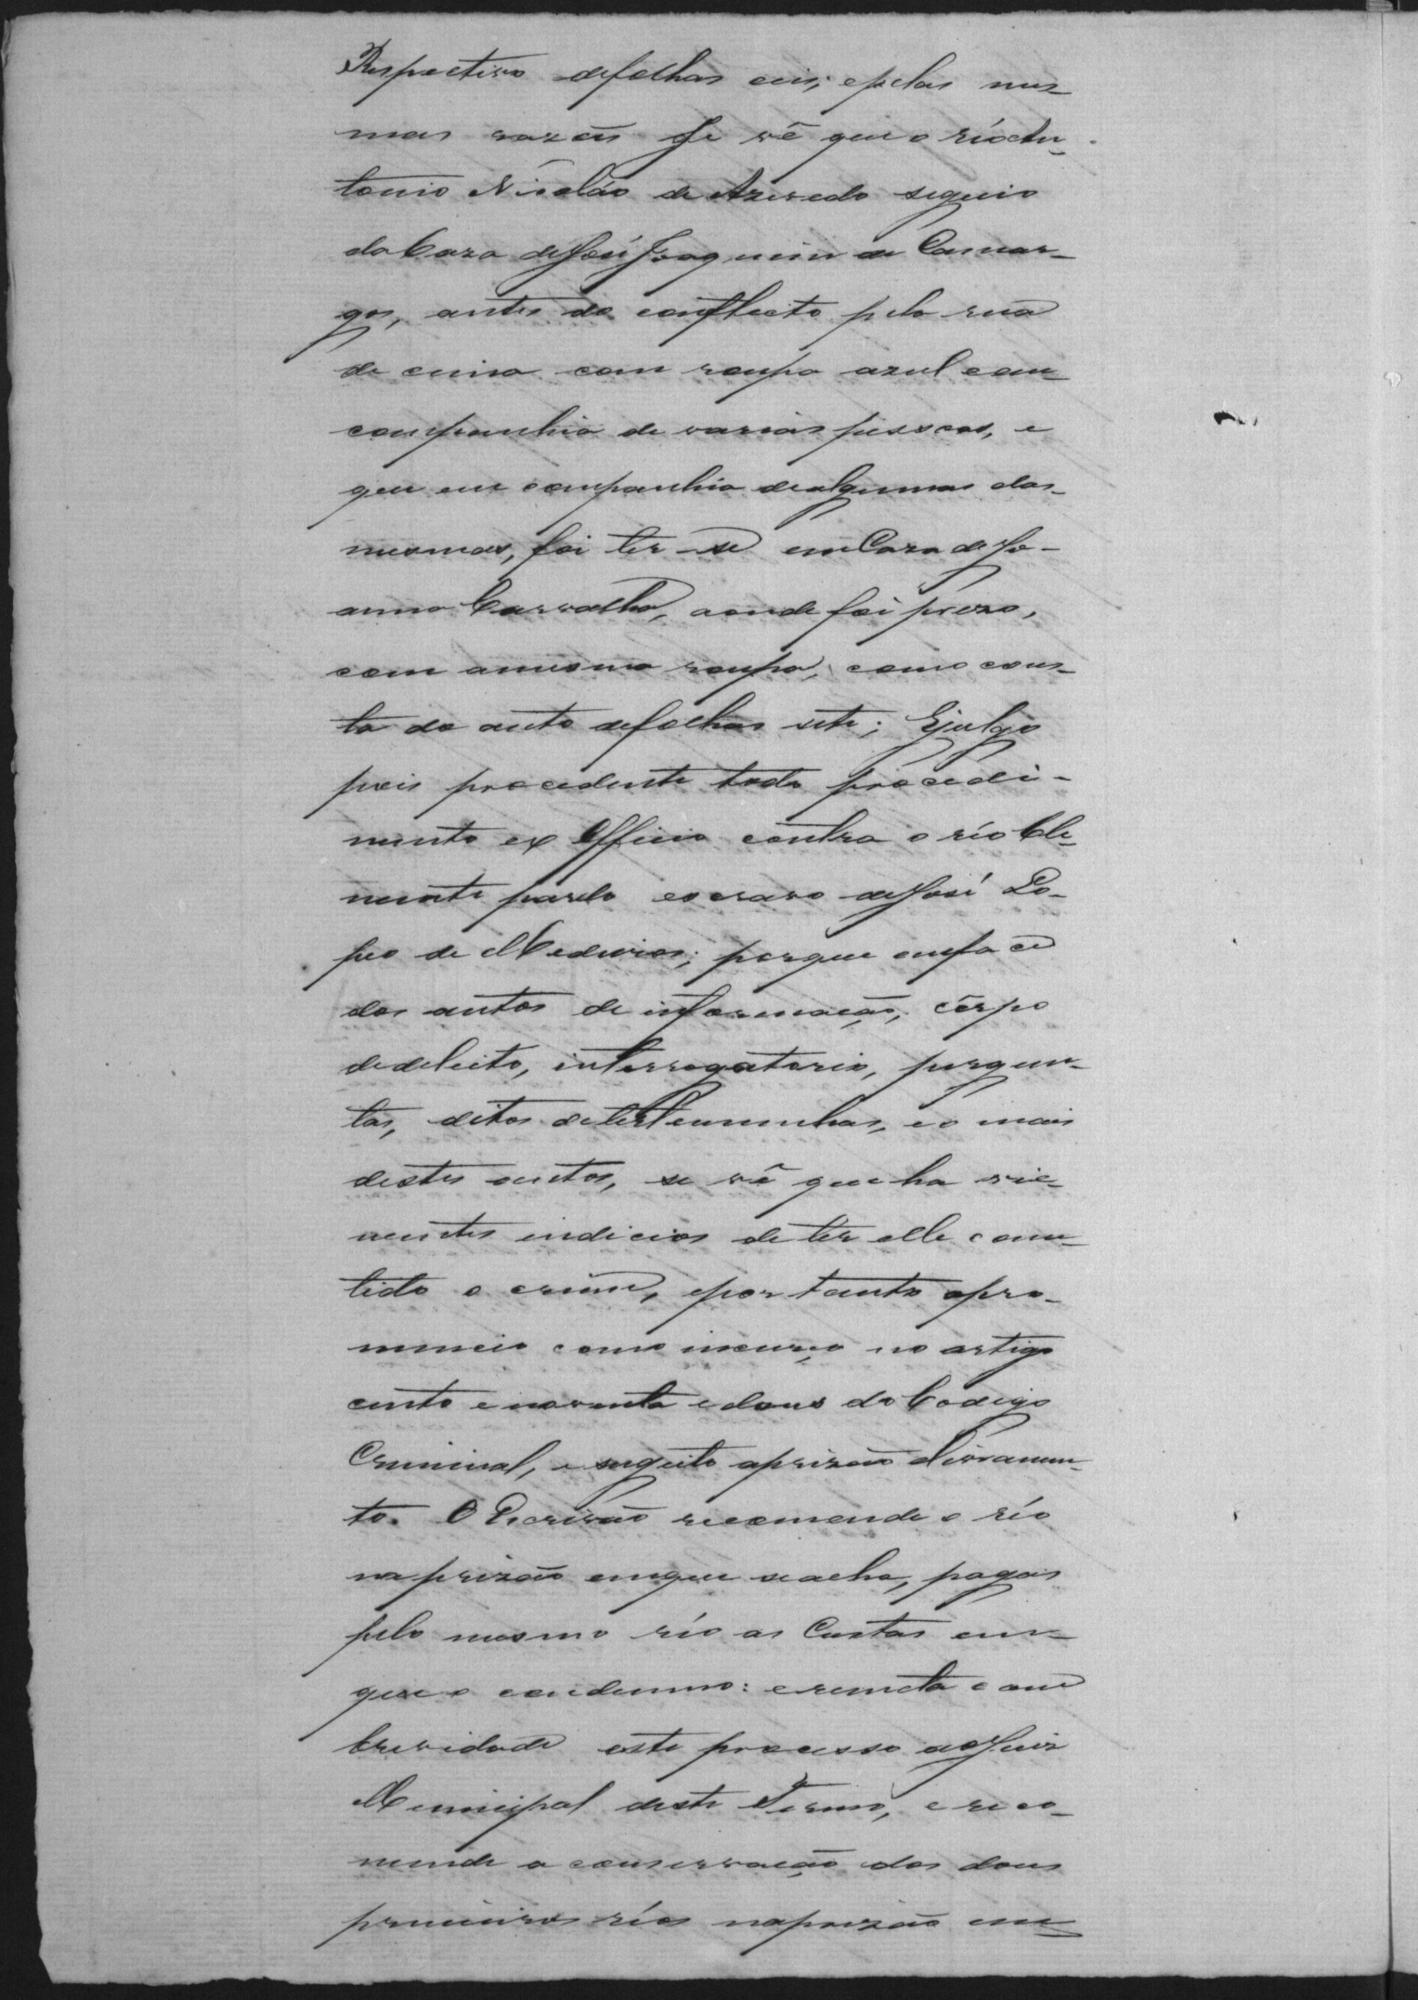 Respectivo defolhas seis; epelas mes-
mas razoẽs Se vê que o réo An-
tonio Nicoláo de Azevedo seguio
da Caza deJosé Joaquim de Camar-
gos, antes do conflicto pela rua
de cima com roupa azul com
companhia de varias pessoas, e
que em companhia dealgumas das
mesmas, foi ter-se em Caza deJo-
anna Carvalho, aonde foi prezo,
com amesma roupa, como cons-
ta do auto defolhas sete; Ejulgo
pois procedente todo procedi-
mento ex Officio contra o réo Cle-
mente pardo escravo deJosé Lo-
pes de Medeiros; porque emface
dos autos de informação, côrpo
dedelicto, interrogatorio, pergun-
tas, ditos detestemunhas, eo mais
destes autos, se vê que ha vie-
mentes indicios de ter elle come-
tido o crime, eportanto opro-
nuncio como incurço no artigo
cento enoventa edous do Codigo
Criminal, e sugeito aprizão eLivramen-
to. O Escrivão recomende o réo
na prizão emque seacha, pagas
pelo mesmo réo as Custas em-
que o condemno: eremeta com
brevidade este processo aoJuiz
Municipal deste Termo, e reco-
mende a conservação dos dous
primeiros réos naprizão em